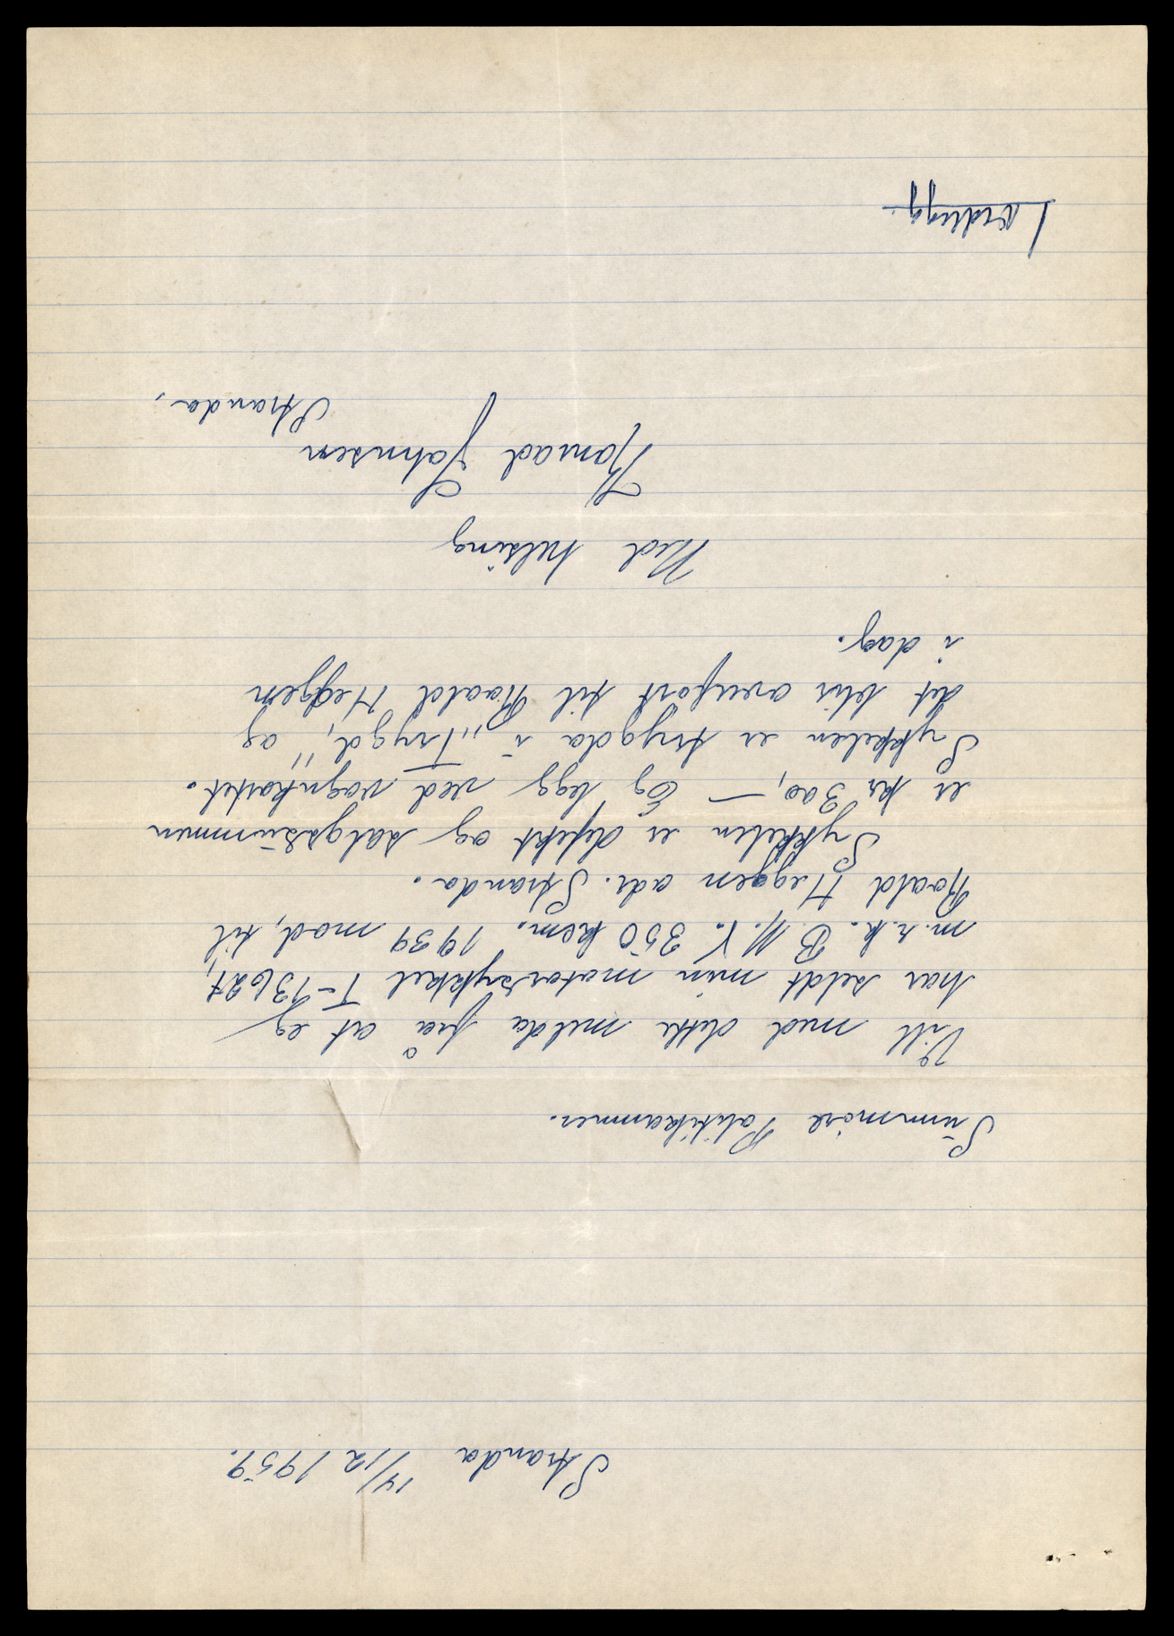 Stranda 14/12 1959.
Sunnmöre Politikammer.
Vill med dette melda frå at eg
har seldt min motorsykkel T-13627,
m.r.k. B M.V. 350 kcm. 1939 mod, til
Roald Heggen adr. Stranda.
Sykkelen er defekt og salgssummen
er kr 300,— Eg legg ved vognkortet.
Sykkelen er trygda i „Trygd„ og
det blir overfört til Roald Heggen
i dag.
Med helsing
Konrad Johnsen
Stranda,